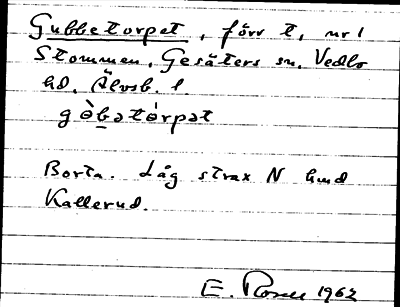 Gubbetorpet, förr t, nr 1
Stommen, Gesäters sn, Vedbo
hd, Älvsb. l.
gòbetórpet
Borta. Låg strax N hmd
Kallerud.
E. Rosell 1962